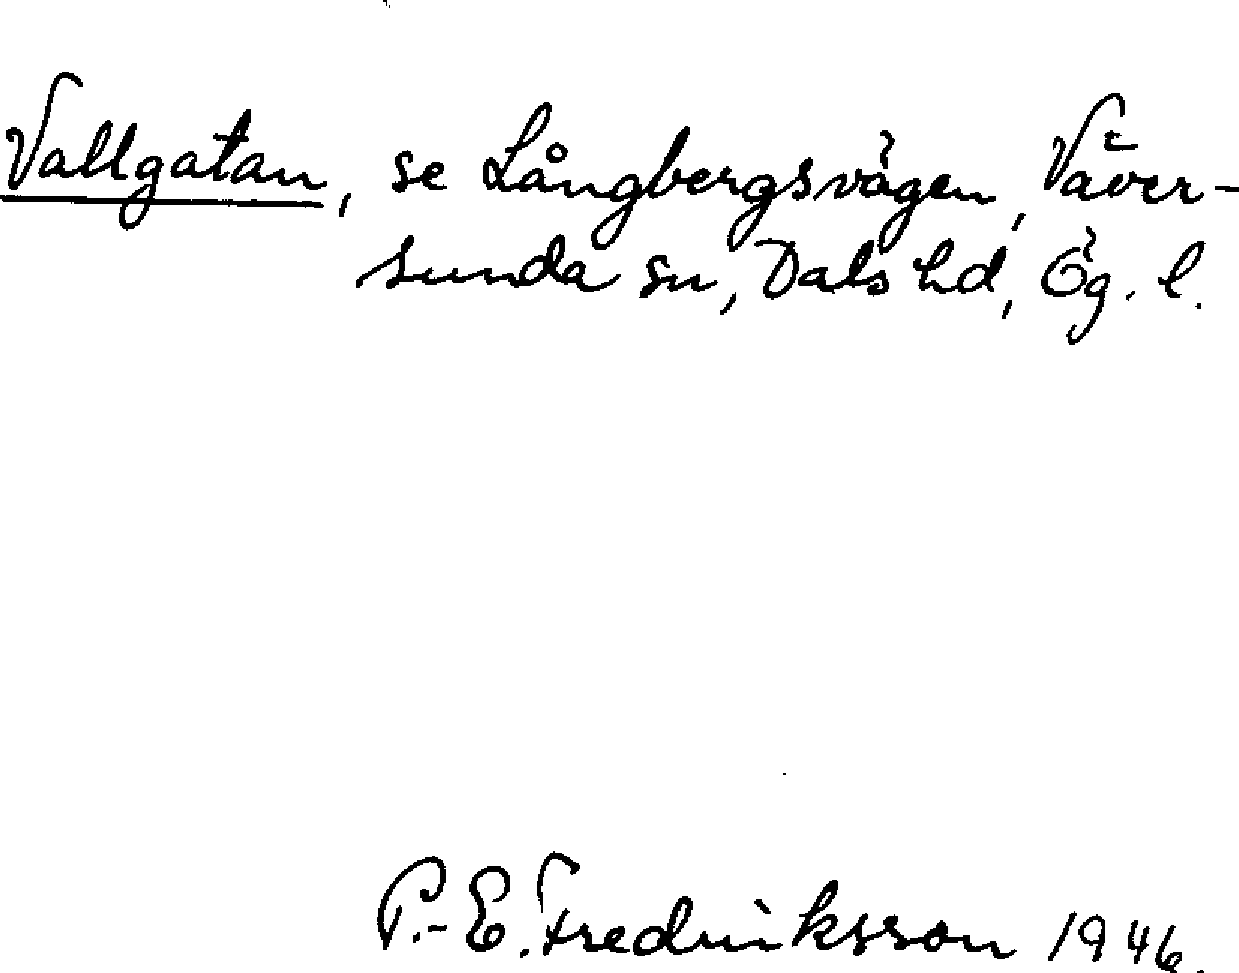 Vallgatan, se Långbergsvägen, Väver-
sunda sn, Dals hd, Ög. l.
P.-E. Fredriksson 1946.